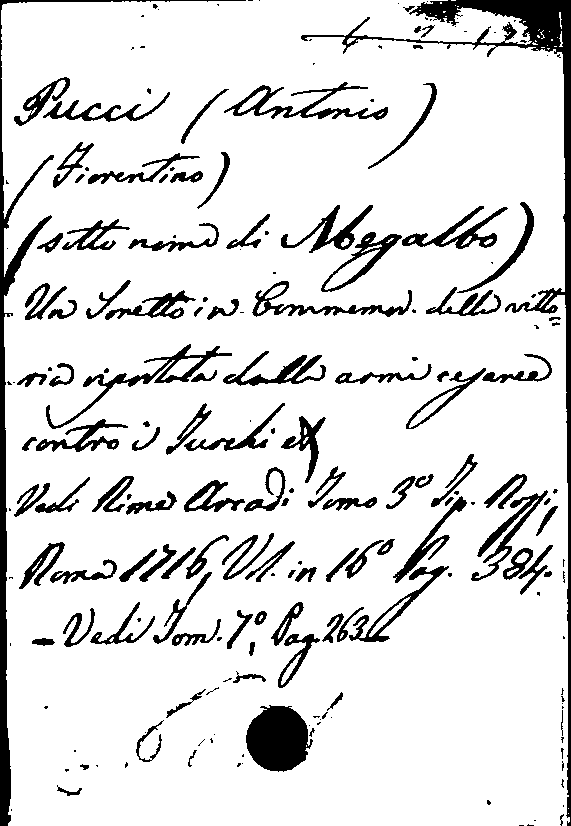 6. 2. 17
Pucci (Antonio)
(Fiorentino)
(sotto nome di Megalbo)
Un Sonetto in Commemor. della vitto=
ria riportata dalla armi cesaree
contro i Turchi
Vedi Rime Arcadi Tomo 3º Tip. Rossi,
Roma 1716, Vol. in 16º Pag. 384.
- Vedi Tom. 7º, Pag. 263 -